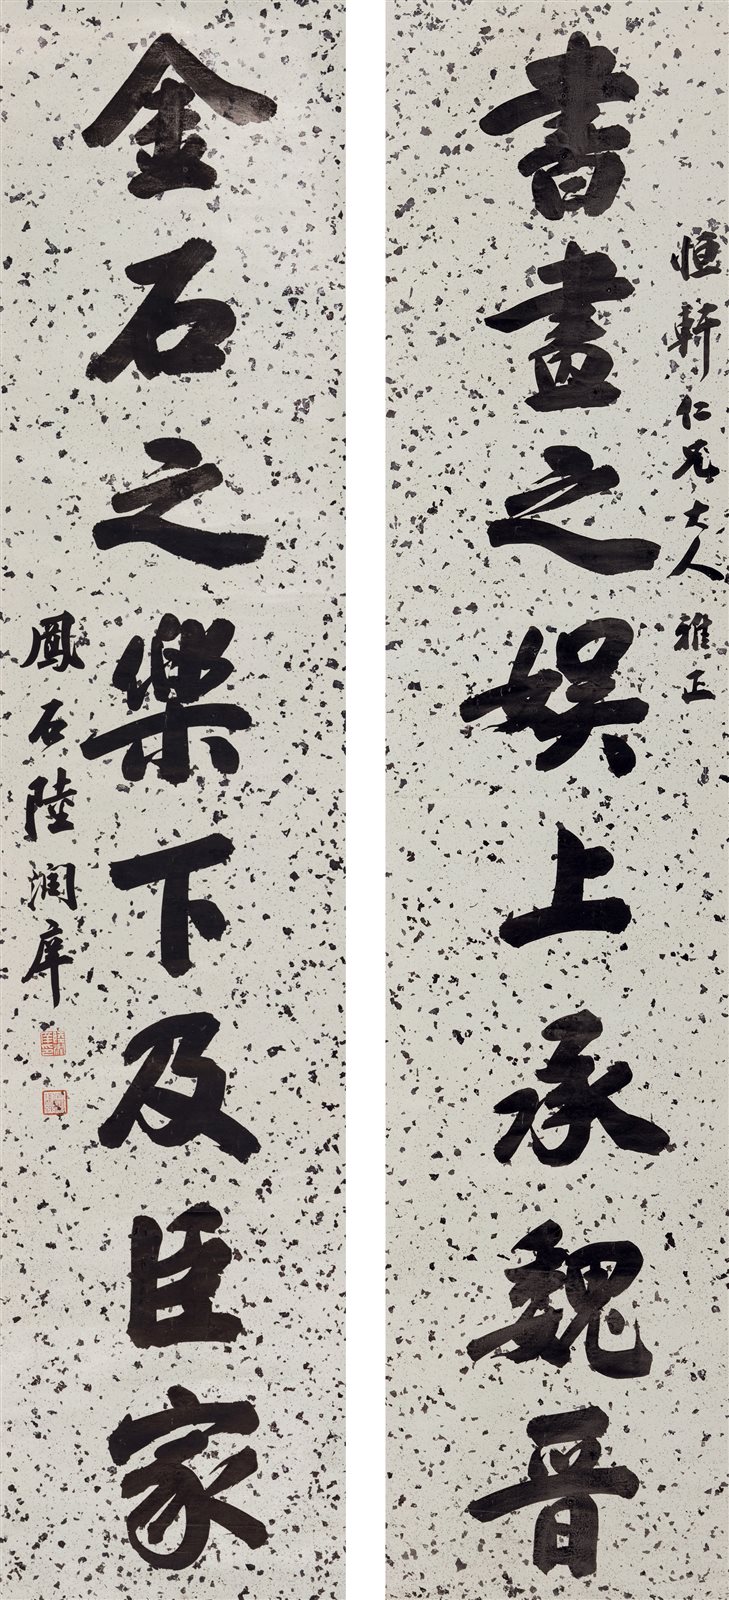 恒軒仁兄大人雅正
書畫之娱上承魏晉
金石之樂下及臣家
鳳石陸潤庠